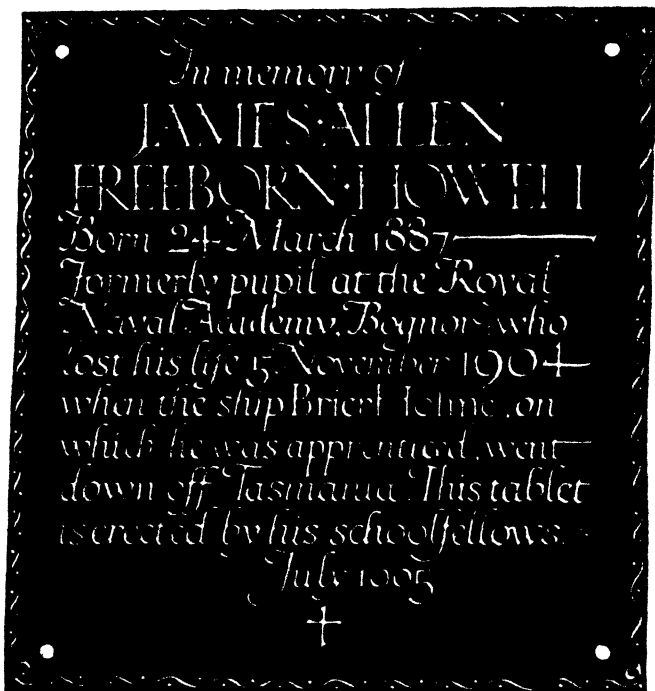 In memory of
JAMES·ALLEN
FREEBORN·HOWELL
Born 24 March 1887
Formerly pupil at the Royal
Naval Academy, Bognor, who
lost his life 5 November 1904
when the ship Brier Holme, on
which he was apprenticed, went
down off Tasmania. This tablet
is erected by his schoolfellows.
July 1905